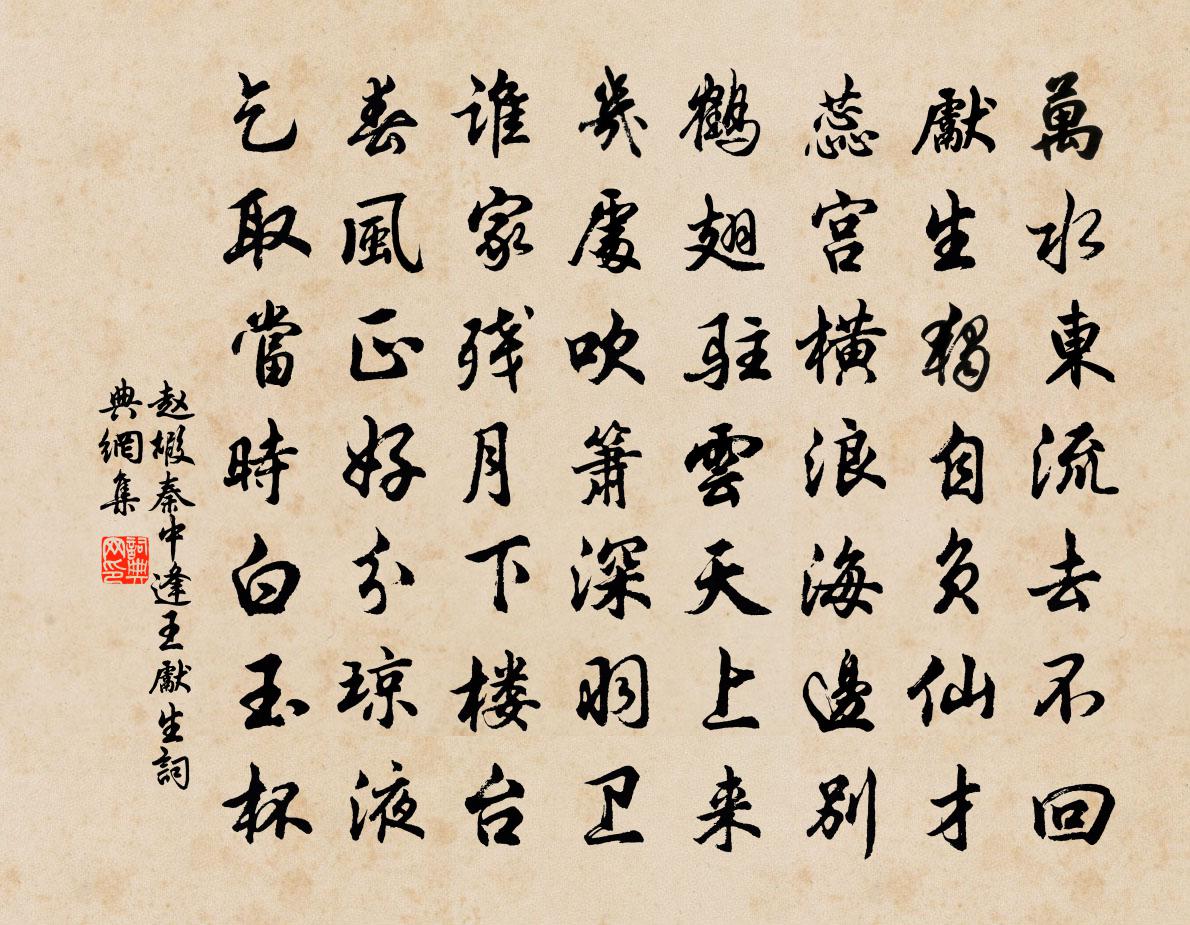 萬水東流去不回
獻生獨自負仙才
蕊宫橫浪海邊別
鶴翅駐雲天上来
幾處吹簫深羽卫
谁家残月下楼台
春風正好分琼液
乞取當時白玉杯
赵嘏秦中逢王獻生詞
典網集
詞典网印